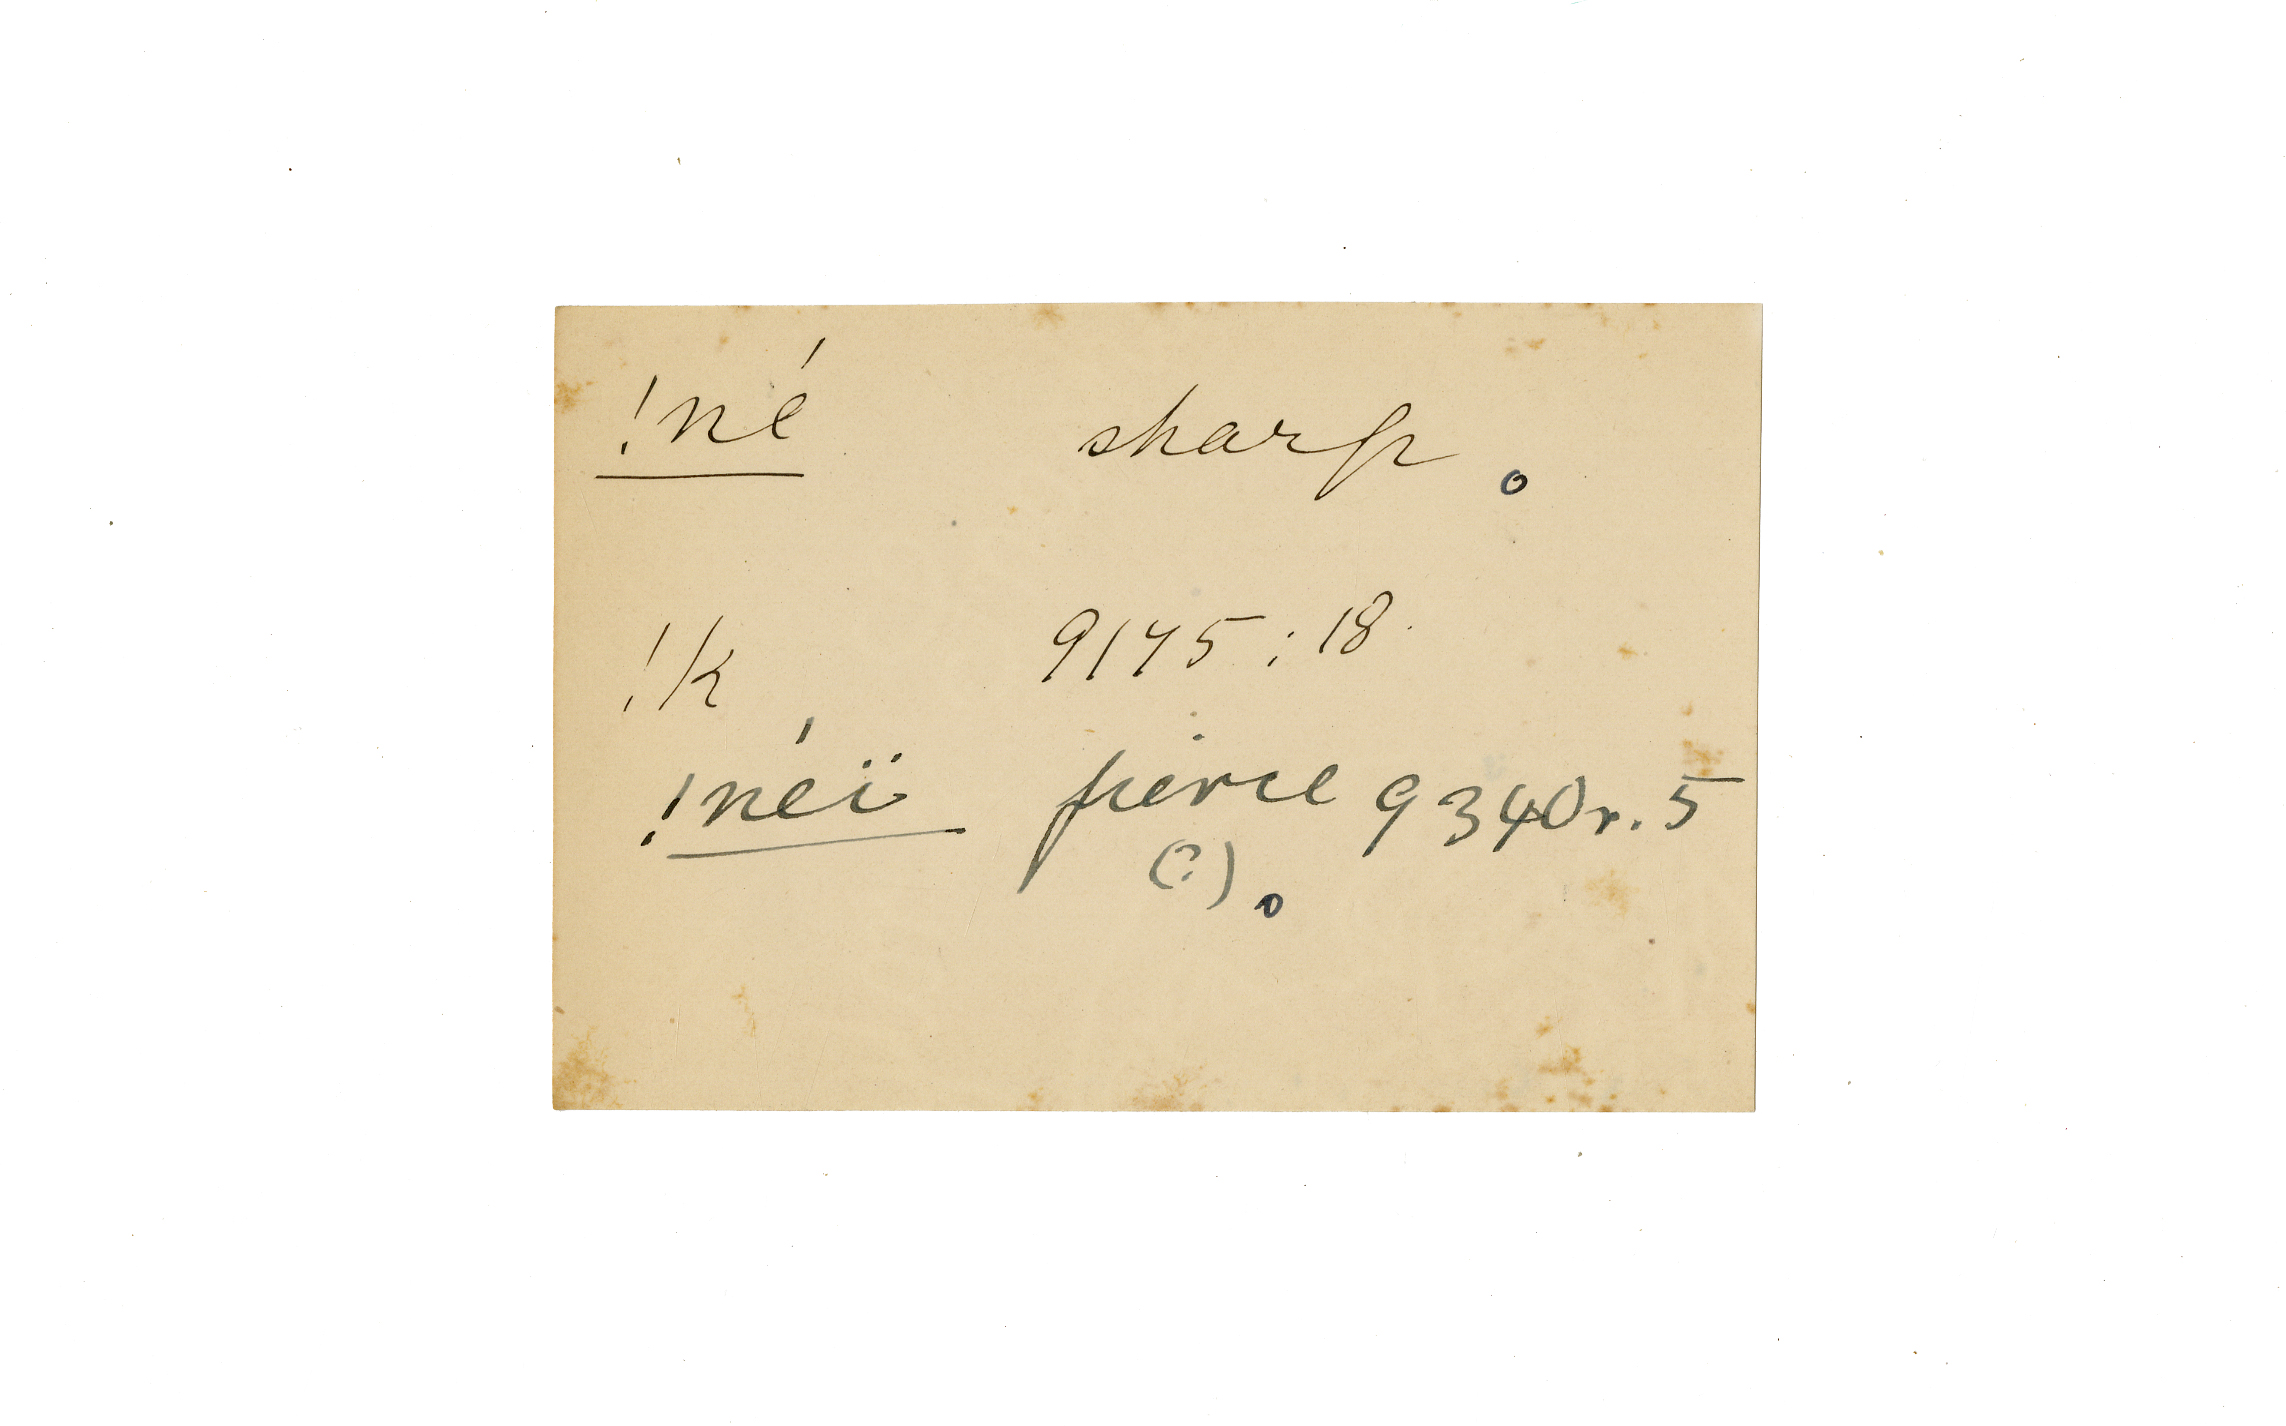 !né sharp.
!k 9175 : 18.
!néï pierce 9340r. 5
(?).